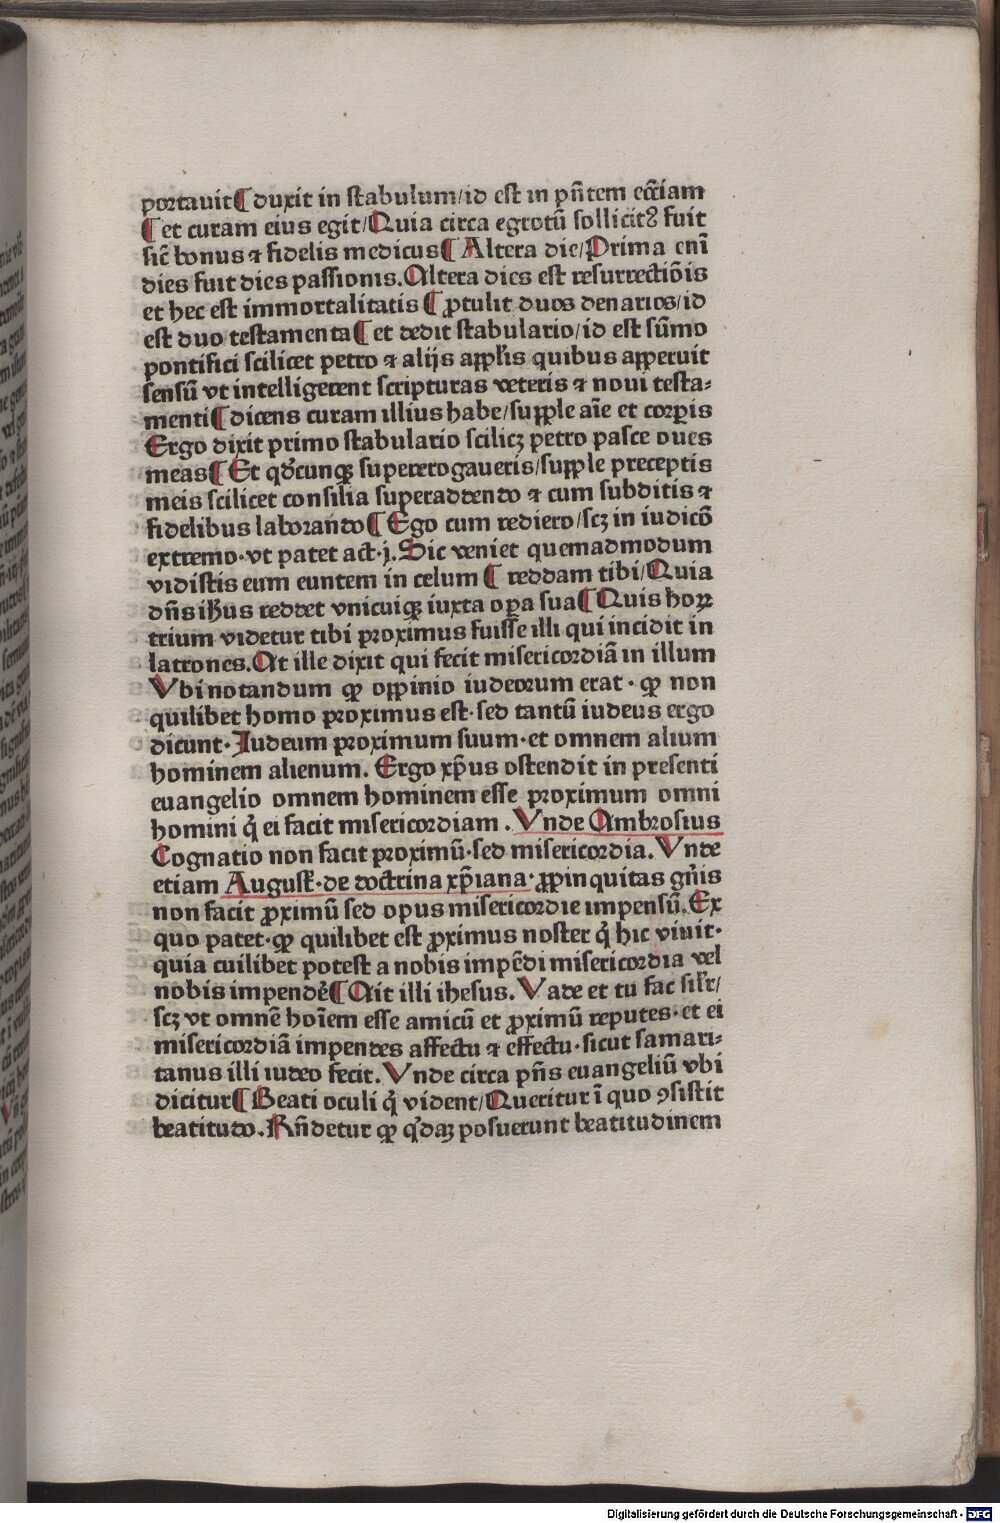 portauit ¶ duxit in stabulum/id est in pn̄tem ecc̄iam
¶ et curam eius egit/Quia circa egrotū sollicitꝰ fuit
sic̄ bonus ⁊ fidelis medicus ¶ Altera die/Prima enī
dies fuit dies passionis. Altera dies est resurrectiōis
et hec est immortalitatis ¶ ꝓtulit duos denarios/id
est duo testamenta ¶ et dedit stabulario/id est sūmo
pontifici scilicet petro ⁊ alijs appl̄is quibus apperuit
sensū vt intelligerent scripturas veteris ⁊ noui testa⸗
menti ¶ dicens curam illius habe/supple aīe et corꝑis
Ergo dixit primo stabulario scilicꝫ petro pasce oues
meas ¶ Et qd̓cunqꝫ supererogaueris/supple preceptis
meis scilicet consilia superaddendo ⁊ cum subditis ⁊
fidelibus laborando ¶ Ego cum rediero/scꝫ in iudicō
extremo·vt patet act·j. Sic veniet quemadmodum
vidistis eum euntem in celum ¶ reddam tibi/Quia
dn̄s ih̄us reddet vnicuiqꝫ iuxta oꝑa sua ¶ Quis hoꝝ
trium videtur tibi proximus fuisse illi qui incidit in
latrones. At ille dixit qui fecit misericordiā in illum
Vbi notandum ꝙ oppinio iudeorum erat · ꝙ non
quilibet homo proximus est·sed tantū iudeus ergo
dicunt· Iudeum proximum suum·et omnem alium
hominem alienum. Ergo xp̄us ostendit in presenti
euangelio omnem hominem esse proximum omni
homini q̇ ei facit misericordiam. Vnde Ambrosius
Cognatio non facit proximū·sed misericordia. Vnde
etiam August̄·de doctrina xp̄iana·ꝓpinquitas gn̄is
non facit ꝓximū sed opus misericordie impensū. Ex
quo patet·ꝙ quilibet est ꝓximus noster q̇ hic viuit·
quia cuilibet potest a nobis impēdi misericordia vel
nobis impendė ¶ Ait illi ihesus. Vade et tu fac sil̄r/
scꝫ vt omnē hoīem esse amicū et ꝓximū reputes·et ei
misericordiā impendes affectu ⁊ effectu·sicut samari⸗
tanus illi iudeo fecit. Vnde circa pn̄s euangeliū vbi
dicitur ¶ Beati oculi q̇ vident/Queritur ī quo ꝯsistit
beatitudo. Rn̄detur ꝙ q̇daꝫ posuerunt beatitudinem
Digitalisierung gefördert durch die Deutsche Forschungsgemeinschaft - DFG